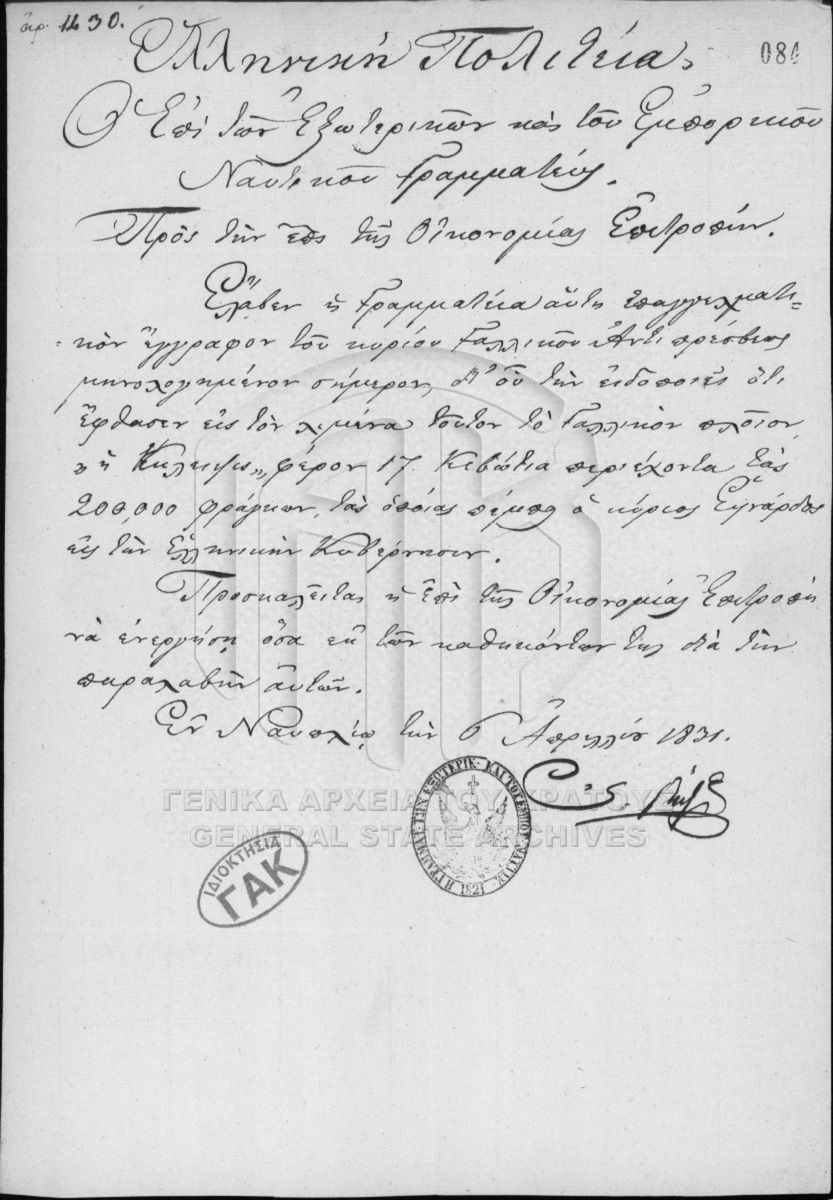 ἀρ. 1430.
084
Ἑλληνικὴ Πολιτεία,
Ὁ Ἐπὶ τῶν Ἐξωτερικῶν καὶ τοῦ Ἐμπορικοῦ
Ναυτικοῦ Γραμματεύς.
Πρὸς τὴν ἐπὶ τῆς Οἰκονομίας Ἐπιτροπήν.
Ἔλαβεν ἡ Γραμματεία αὕτη ἐπαγγελματι-
κὸν ἔγγραφον τοῦ κυρίου Γαλλικοῦ Ἀντιπρέσβεως
μηνολογημένον σήμερον, δι' οὗ τὴν εἰδοποιεῖ ὅτι
ἔφθασεν εἰς τὸν λιμένα τοῦτον τὸ Γαλλικὸν πλοῖον
„ἡ " φέρον 17. Κιβώτια περιέχοντα τὰς
200,000 φράγκων, τὰς ὁποίας πέμπει ὁ κύριος Εὐνάρδος
εἰς τὴν Ἑλληνικὴν Κυβέρνησιν.
Προσκαλεῖται ἡ Ἐπὶ τῆς Οἰκονομίας Ἐπιτροπὴ
νὰ ἐνεργήσῃ ὅσα ἐκ τῶν καθηκόντων της διὰ τὴν
παραλαβὴν αὐτῶν.
Ἐν Ναυπλίῳ τὴν 6 Ἀπριλλίου 1831.
ΓΕΝΙΚΑ ΑΡΧΕΙΑ ΤΟΥ ΚΡΑΤΟΥΣ
GENERAL STATE ARCHIVES
ΙΔΙΟΚΤΗΣΙΑ
ΓΑΚ
Η ΓΡΑΜΜΑΤ· ΤΩΝ ΕΞΩΤΕΡΙΚ· ΚΑΙ ΤΟΥ ΕΜΠΟΡ· ΝΑΥΤΙΚ·
1821